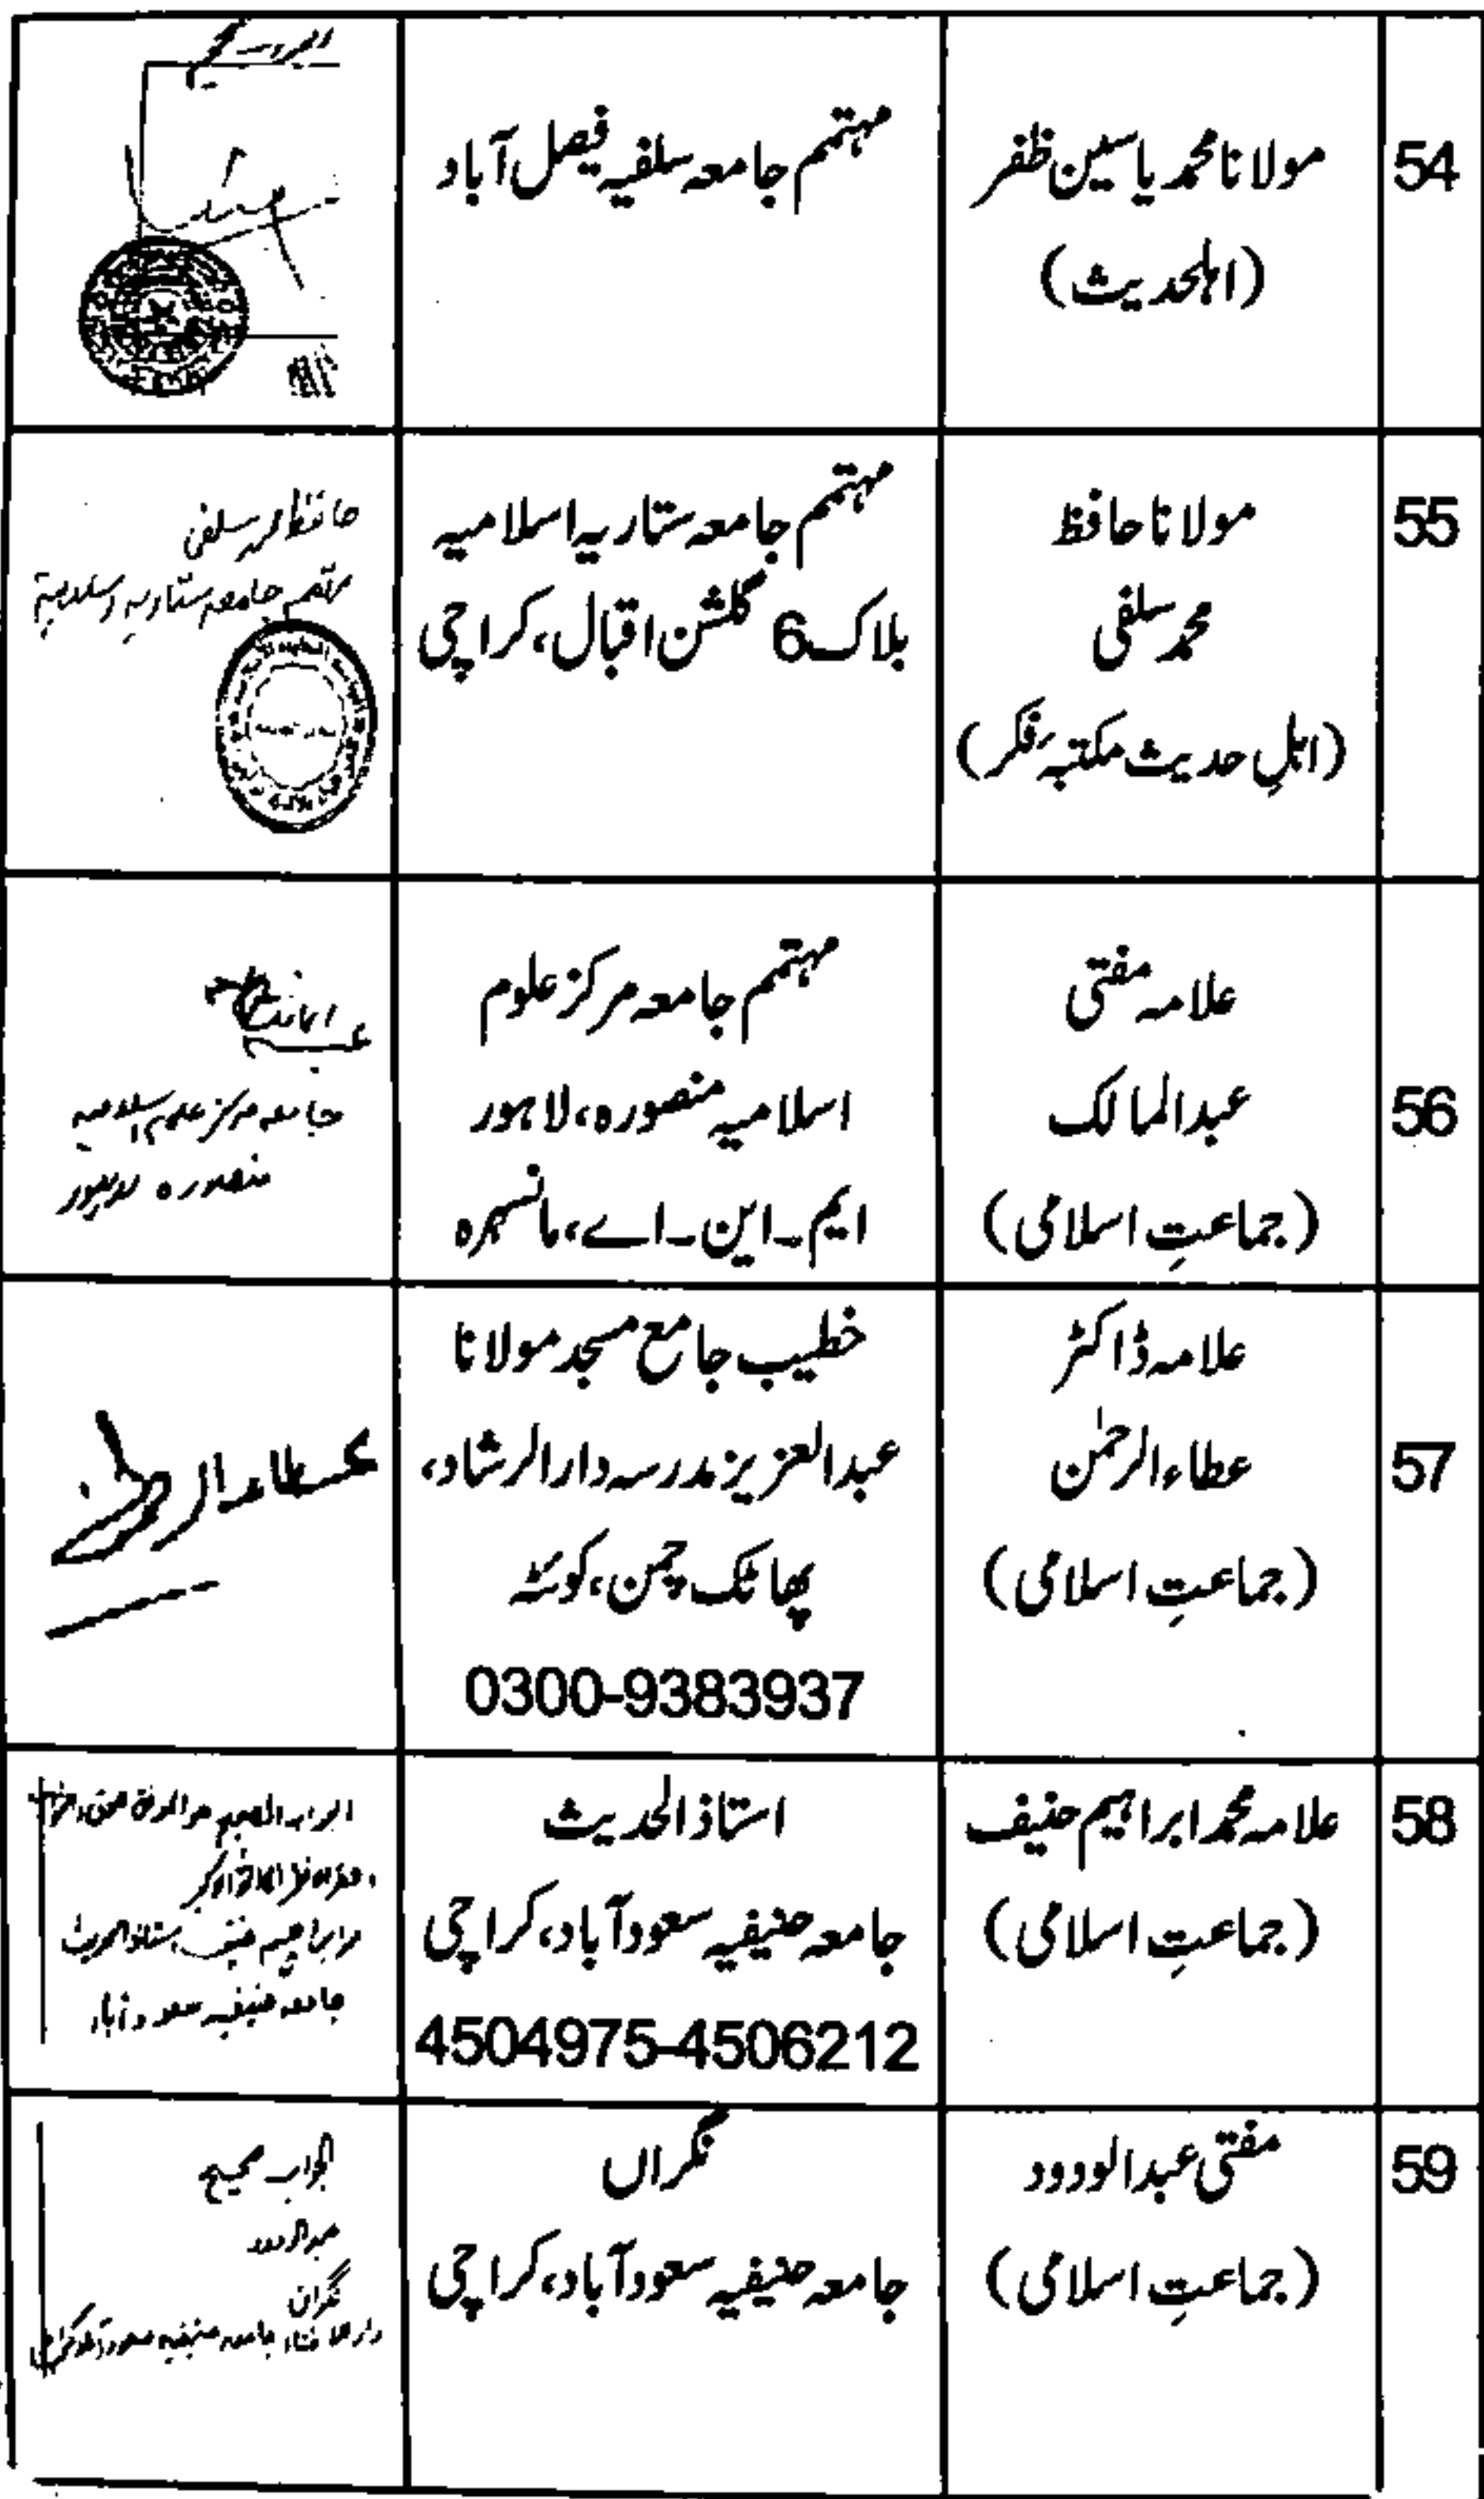 54
مولانا محمد یاسین ظفر
(اہلحدیث)
مہتمم جامعہ سلفیہ فیصل آباد
55
مولانا حافظ
محمد سلفی
(اہلِ حدیث مکتبہ فکر)
مہتمم جامعہ ستاریہ اسلامیہ
بلاک 6 گلشن اقبال، کراچی
حافظ محمد سلفی
مہتمم جامعہ ستاریہ اسلامیہ
56
علامہ مفتی
عبدالمالک
(جماعتِ اسلامی)
مہتمم جامعہ مرکز علوم
اسلامیہ منصورہ، لاہور
ایم۔این۔اے، مانسہرہ
جامعہ مرکز علوم اسلامیہ
منصورہ لاہور
57
علامہ ڈاکٹر
عطاء الرحمٰن
(جماعتِ اسلامی)
خطیب جامع مسجد مولانا
عبدالعزیز مدرسہ دارالرشاد،
پھاٹک چمن، کوئٹہ
0300-9383937
عطاء الرحمٰن
58
علامہ محمد ابراہیم حنیف
(جماعتِ اسلامی)
استاذ الحدیث
جامعہ حنیفیہ سعودآباد، کراچی
4504975-4506212
ابراہیم حنیف استاذ الحدیث
جامعہ حنیفیہ سعودآباد
59
مفتی عبدالودود
(جماعتِ اسلامی)
نگراں
جامعہ حنیفیہ سعودآباد، کراچی
الجواب صحیح
عبدالودود
نگران
دارالافتاء جامعہ حنیفیہ سعودآباد کراچی